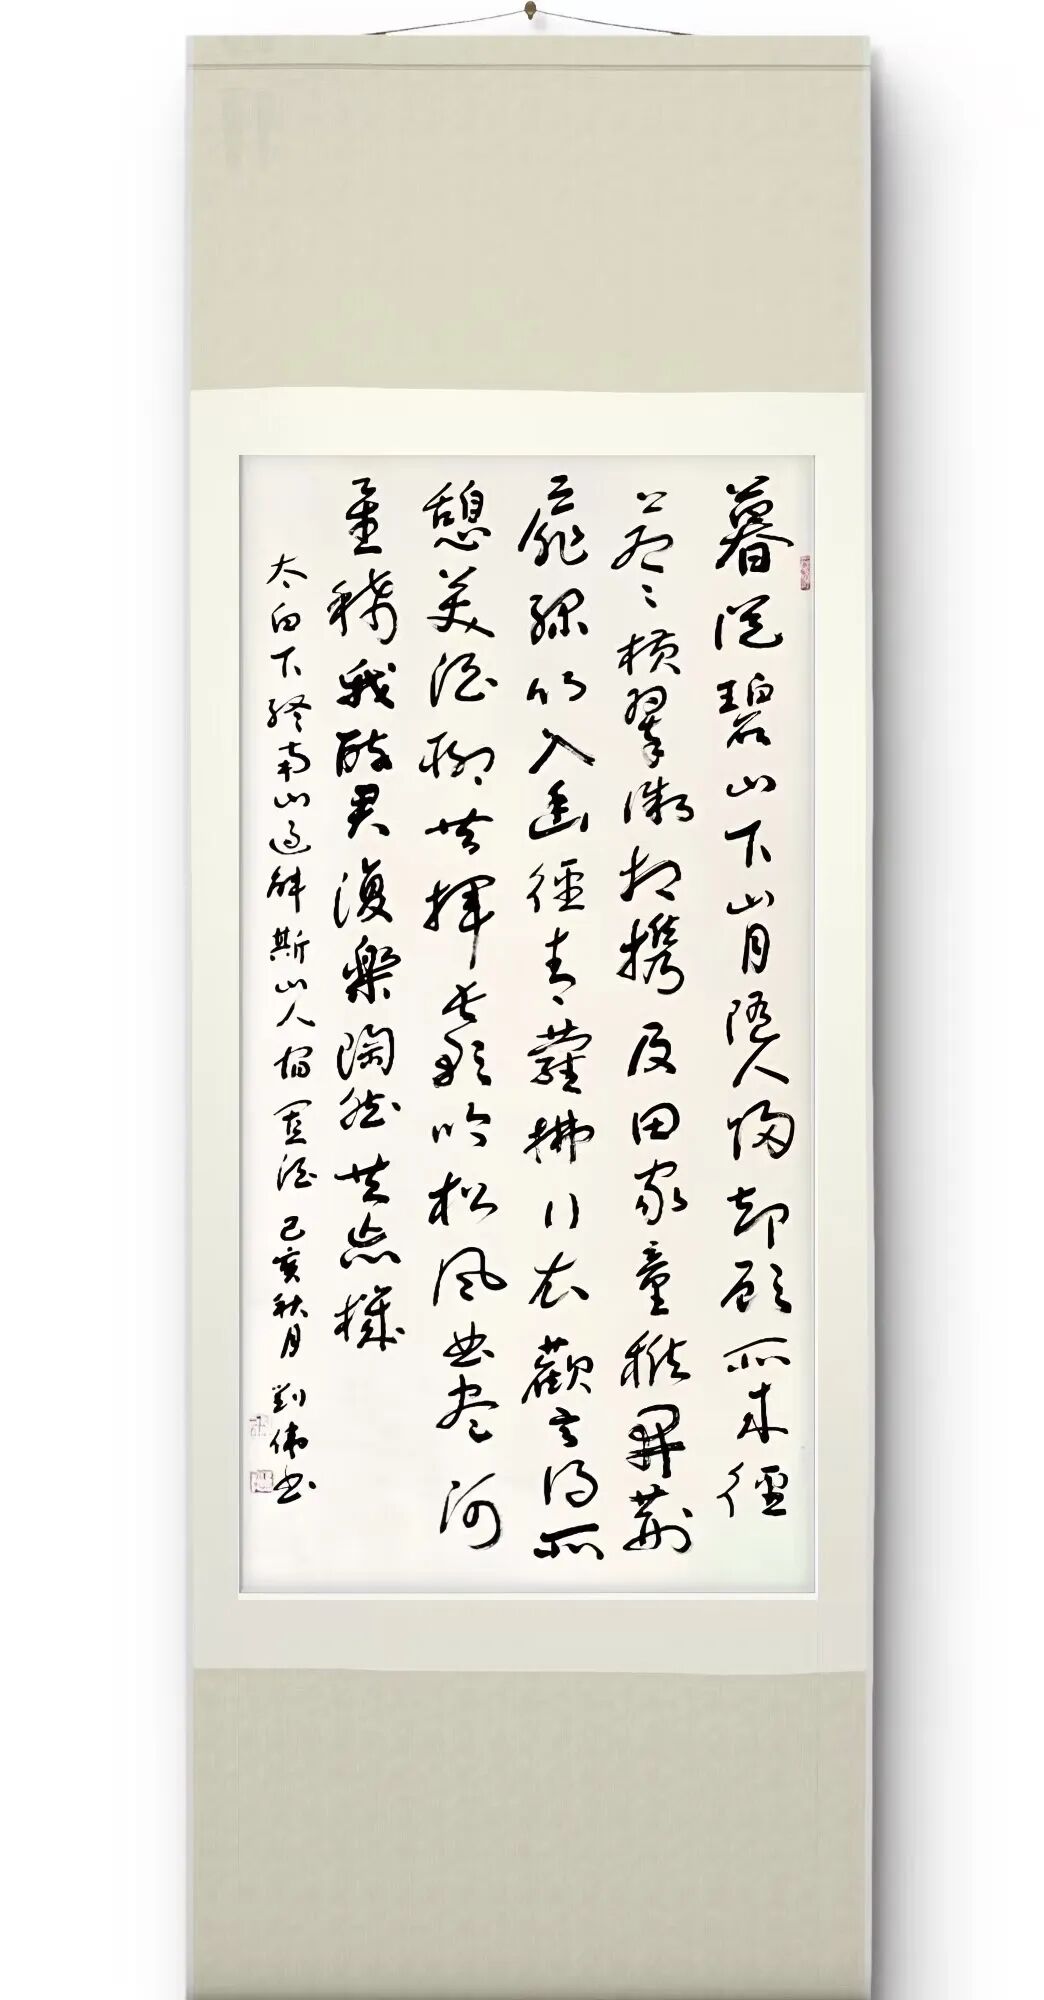 暮從碧山下山月隨人歸却顧所來徑
蒼〻橫翠微相攜及田家童稚開荊
扉綠竹入幽徑青蘿拂行衣歡言得所
憩美酒聊共揮長歌吟松風曲盡河
星稀我醉君復樂陶然共忘機
太白下終南山過斛斯山人宿置酒己亥秋月劉偉書